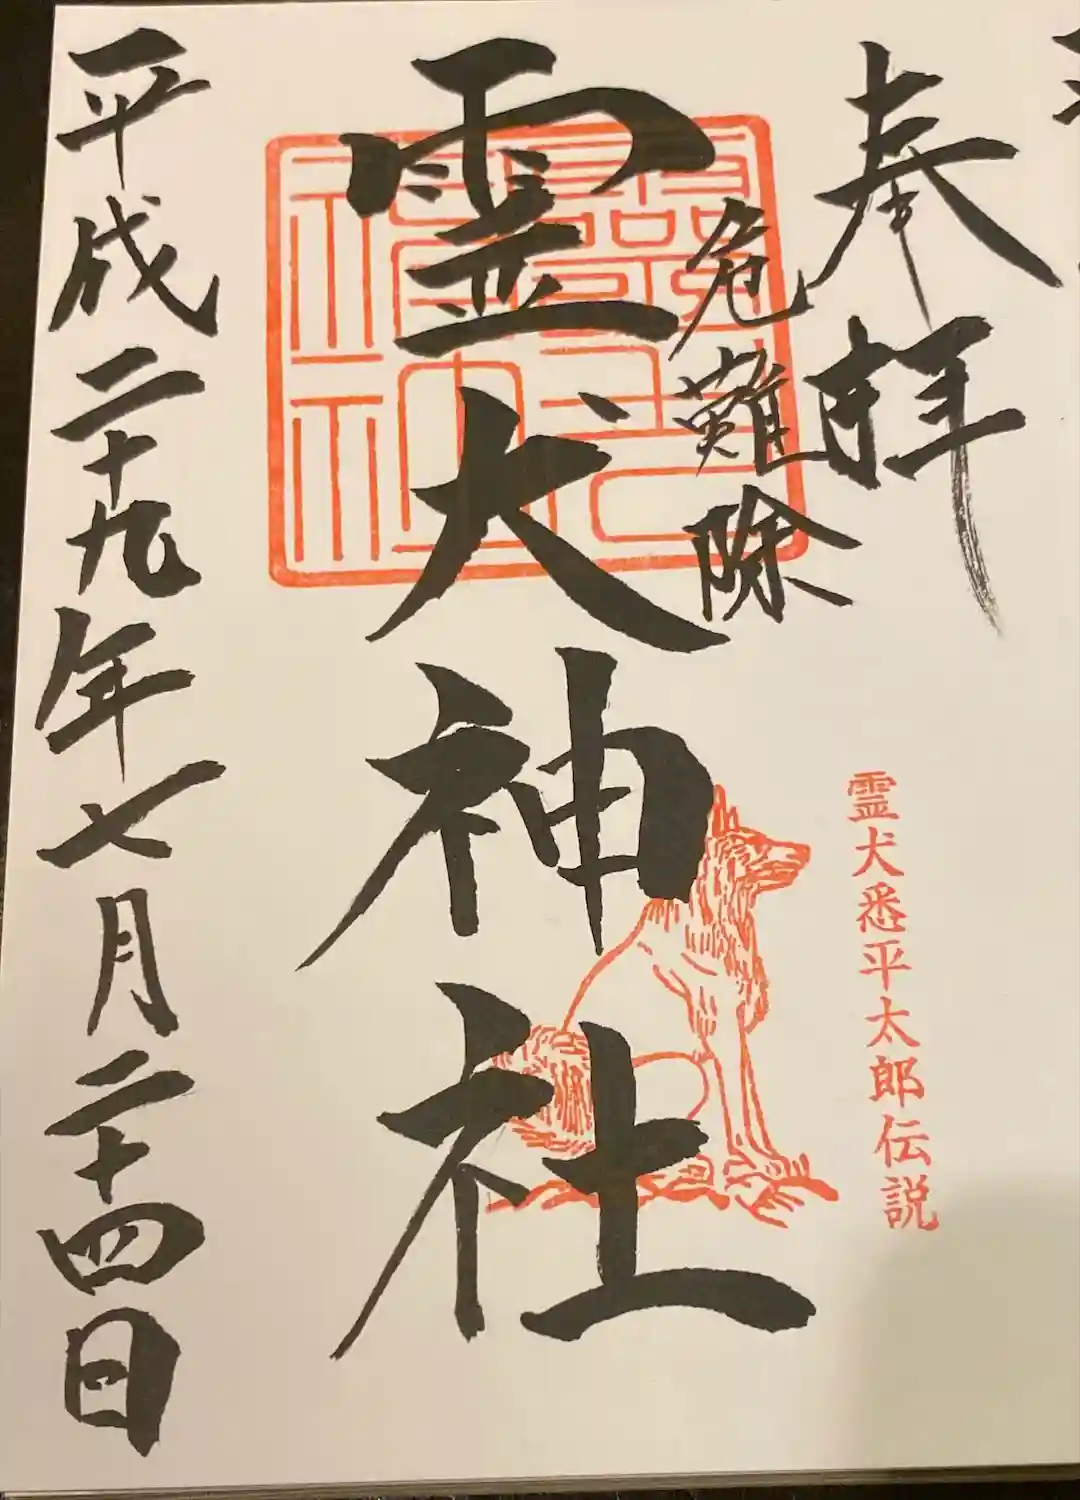 奉拝
危難除
霊犬神社
霊犬悉平太郎伝説
平成二十九年七月二十四日